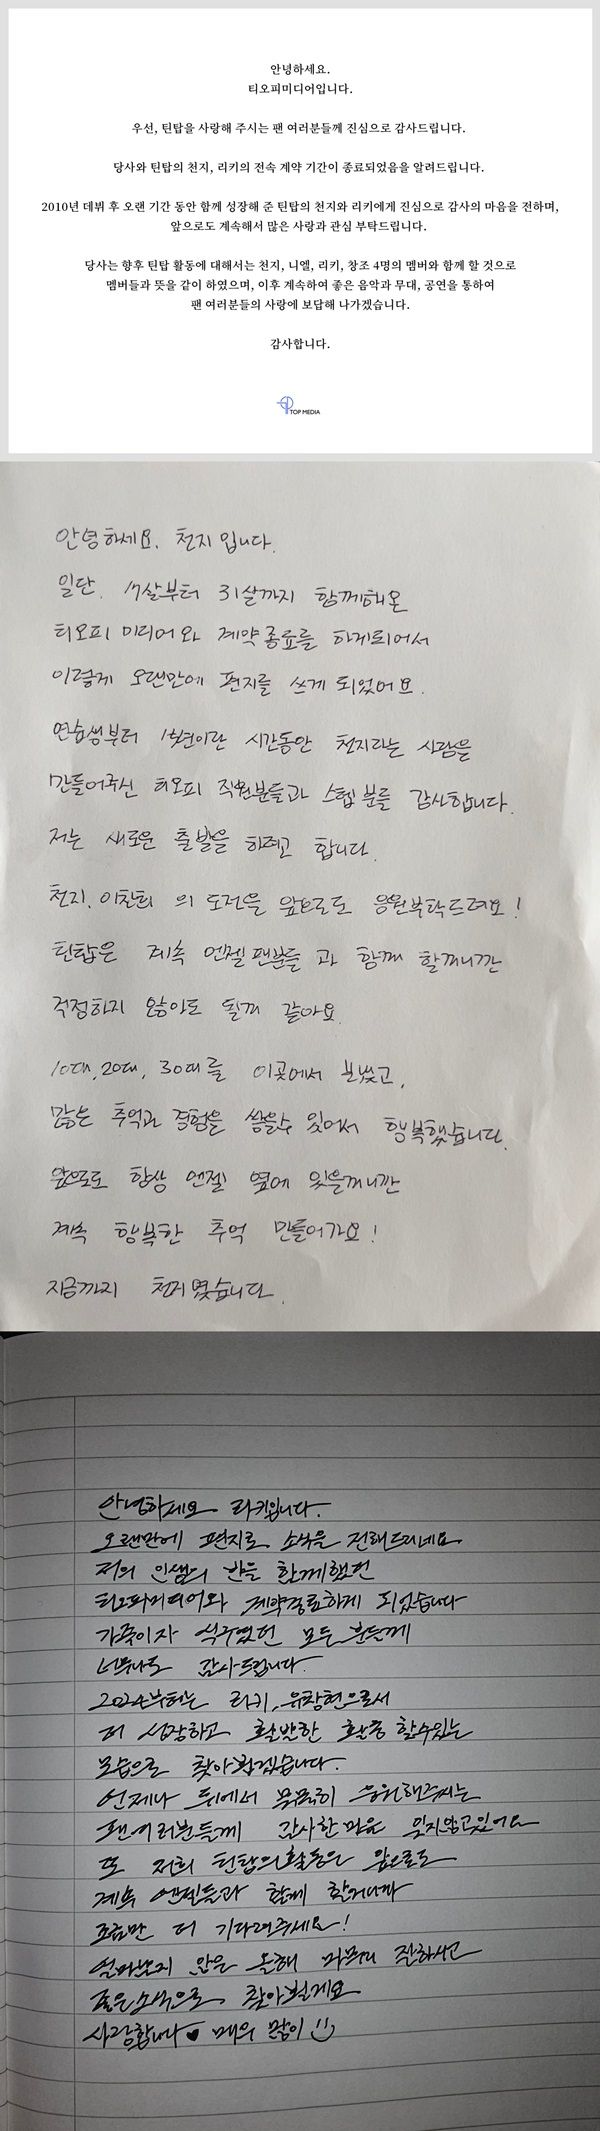 안녕하세요.
티오피미디어입니다.
우선, 틴탑을 사랑해 주시는 팬 여러분들께 진심으로 감사드립니다.
당사와 틴탑의 천지, 리키의 전속 계약 기간이 종료되었음을 알려드립니다.
2010년 데뷔 후 오랜 기간 동안 함께 성장해 준 틴탑의 천지와 리키에게 진심으로 감사의 마음을 전하며,
앞으로도 계속해서 많은 사랑과 관심 부탁드립니다.
당사는 향후 틴탑 활동에 대해서는 천지, 니엘, 리키, 창조 4명의 멤버와 함께 할 것으로
멤버들과 뜻을 같이 하였으며, 이후 계속하여 좋은 음악과 무대, 공연을 통하여
팬 여러분들의 사랑에 보답해 나가겠습니다.
감사합니다.
TOP MEDIA
안녕하세요. 천지입니다.
일단. 17살부터 31살까지 함께해온
티오피 미디어와 계약종료를 하게되어서
이렇게 오랜만에 편지를 쓰게 되었어요.
연습생부터 15년이란 시간동안 천지라는 사람을
만들어주신 티오피 직원분들과 스텝분들 감사합니다.
저는 새로운 출발을 하려고 합니다.
천지. 이찬희 의 도전을 앞으로도 응원부탁드려요!
틴탑은 계속 엔젤팬분들 과 함께 할꺼니깐
걱정하지 않아도 될꺼 같아요.
10대, 20대, 30대를 이곳에서 보냈고,
많은 추억과 경험을 쌓을수 있어서 행복했습니다.
앞으로도 항상 엔젤 옆에 있을꺼니깐
계속 행복한 추억 만들어가요!
지금까지 천지였습니다.
안녕하세요 리키입니다.
오랜만에 편지로 소식을 전해드리네요
저의 인생의 반을 함께했던
티오피미디어와 계약종료하게 되었습니다
가족이자 식구였던 모든 분들께
너무나도 감사드립니다.
2024부터는 리키, 유창현으로서
더 성장하고 활발한 활동 할수있는
모습으로 찾아뵙겠습니다.
언제나 뒤에서 묵묵히 응원해주시는
팬여러분들께 감사한마음 잊지않고있어요
또 저희 틴탑의활동은 앞으로도
계속 엔젤들과 함께 할거니까
조금만 더 기다려주세요!
얼마남지 않은 올해 마무리 잘하시고
좋은소식으로 찾아뵐게요
사랑합니다♥ 매우 많이 :)